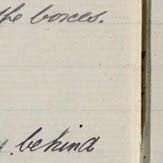 the boxes.
behind